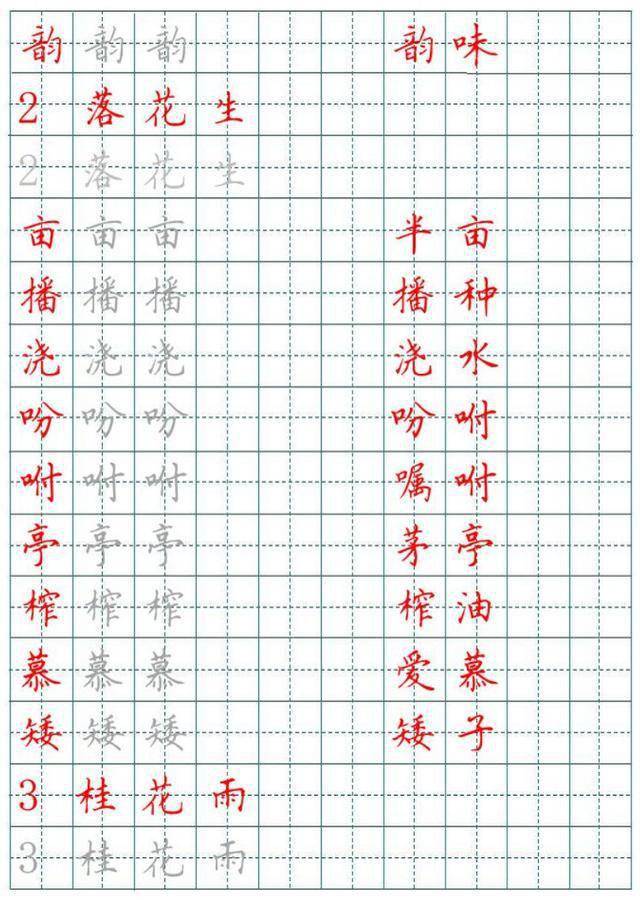 韵 韵 韵 韵 味
2 落 花 生
2 落 花 生
亩 亩 亩 半 亩
播 播 播 播 种
浇 浇 浇 浇 水
吩 吩 吩 吩 咐
咐 咐 咐 嘱 咐
亭 亭 亭 茅 亭
榨 榨 榨 榨 油
慕 慕 慕 爱 慕
矮 矮 矮 矮 子
3 桂 花 雨
3 桂 花 雨